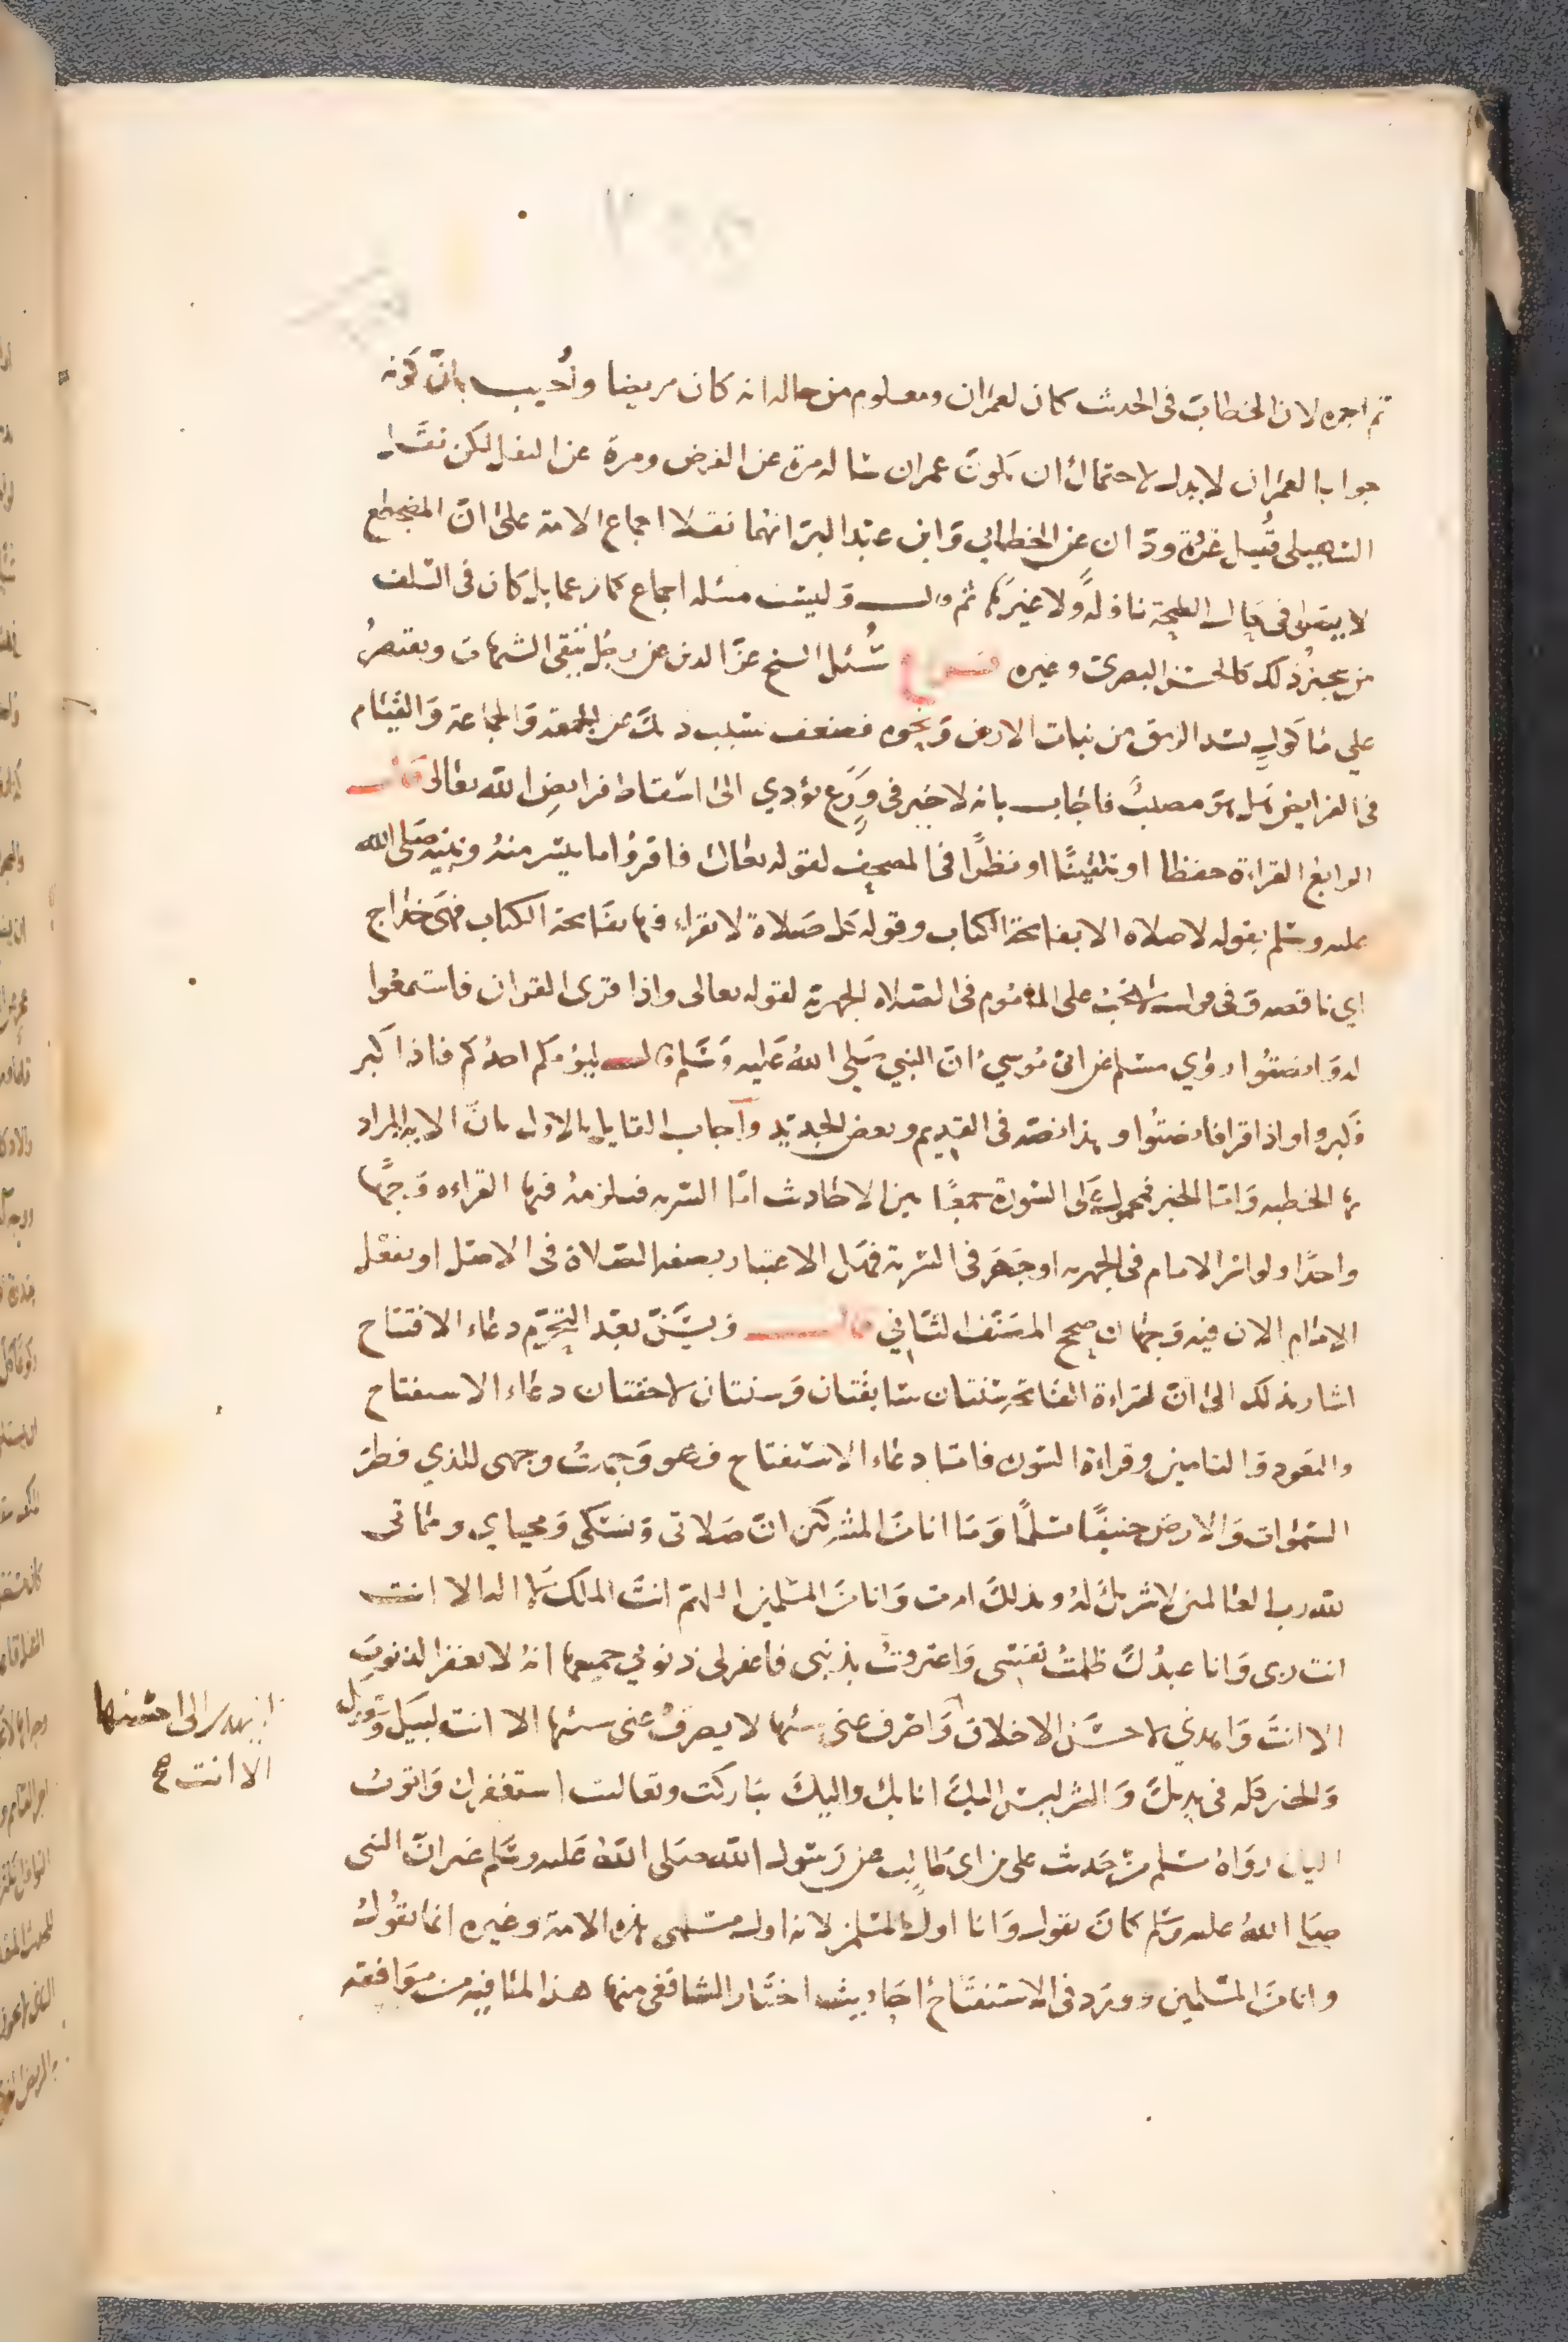 تم اجره لان الخطاب فى الحدث كان لعمران ومعلوم من حاله انه كان مريضا وأُجيب بانّ كونه
جوابا لعمران لا يدل لاحتمال ان يكون عمران ساله مرة عن الفرض ومرة عن النفل لكن نقل
السهيلي قُبيل غزوة ودّان عن الخطابي وابن عبد البر انهما نقلا اجماع الامة على ان المضجطع
لا يتنفل فى حال الصحة نافلة ولا غيرها ثم قال وليست مسئلة اجماع كما زعما بل كان فى السلف
من يجيز ذلك كالحسن البصري وغيره فرع سُئل الشيخ عز الدين عن رجل يتقى الشبهات ويقتصر
علي ماكول يسد الرمق من نبات الارض ونحوه فضعف بسبب ذلك عن الجمعة والجماعة والقيام
فى الفرايض هل هو مصيب فاجاب بانه لا خير فى وَرَع يؤدي الى اسقاط فرايض الله تعالى قال
الرابع القراءة حفظا او تلقينًا او نظرًا فى المصحف لقوله تعالى فاقرؤا ما تيسر منه وبينه صلى الله
عليه وسلم بقوله لا صلاه الا بفاتحة الكتاب وقوله كل صلاة لا تقراء فيها بفاتحة الكتاب فهى خداج
اي ناقصه وفى قول لا تجب على الماموم فى الصلاه الجهرية لقوله تعالى واذا قرى القران فاستمعوا
له وانصتوا وروي مسلم عن ابى موسي ان النبي صلى الله عليه وسلم قال ليؤمكم احدكم فاذا كبر
فكبروا واذا قرا فانصتوا وهذا نصه فى القديم وبعض الجديد وأجاب القايل بالاول بان الاية المراد
بها الخطبه واما الخبر فمحمول على السورة جمعًا بين الاحاديث امّا السريه فيلزمه فيها القراءه وجهًا
واحدًا ولو اسر الامام فى الجهريه او جهر فى السرية فهل الاعتبار بصفه الصلاة فى الاصل او بفعل
الامام الان فيه وجهان صحح المصنف الثاني قال ويسن بعد التحرّم دعاء الافتتاح
اشار بذلك الى ان لقراءة الفاتحة سنتان سابقتان وسنتان لاحقتان دعاء الاستفتاح
والتعوذ والتامين وقراءة السورة فاما دعاء الاستفتاح فهو وجهتُ وجهى للذي فطر
السموات والارض حنيفًا مسلمًا وما انا من المشركين ان صلاتى ونسكى ومحياي ومماتى
لله رب العالمين لا شريك له وبذلك امرت وانا من المسلمين اللهم انت الملك لا اله الا انت
انت ربى وانا عبدك ظلمتُ نفسى واعترفتُ بذنبى فاغفر لى ذنوبي جميعها انه لا يغفر الذنوب
الا انت واهدنى لاحسن الاخلاق واصرف عنى سيئها لا يصرف عنى سيئها الا انت لبيك وسعديك
لا يهدى الى احسنها
الا انت صح
والخير كله فى يديك والشر ليس اليك انا بك واليك تباركت وتعاليت استغفرك واتوب
اليك رواه مسلم من حديث على بن ابى طالب عن رسول الله صلى الله عليه وسلم غير ان النبى
صلى الله عليه وسلم كان يقول وانا اول المسلمين لانه اول مسلمى هذه الامة وغيره انما يقول
وانا من المسلمين وورد فى الاستفتاح احاديث اختار الشافعى منها هذا لما فيه من موافقة